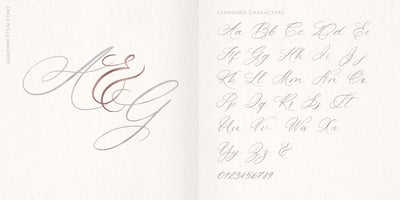 HANDWRITTEN FONT
A & G
STANDARD CHARACTERS
Aa Bb Cc Dd Ee
Ff Gg Hh Ii Jj
Kk Ll Mm Nn Oo
Pp Qq Rr Ss Tt
Uu Vv Ww Xx
Yy Zz &
0123456789